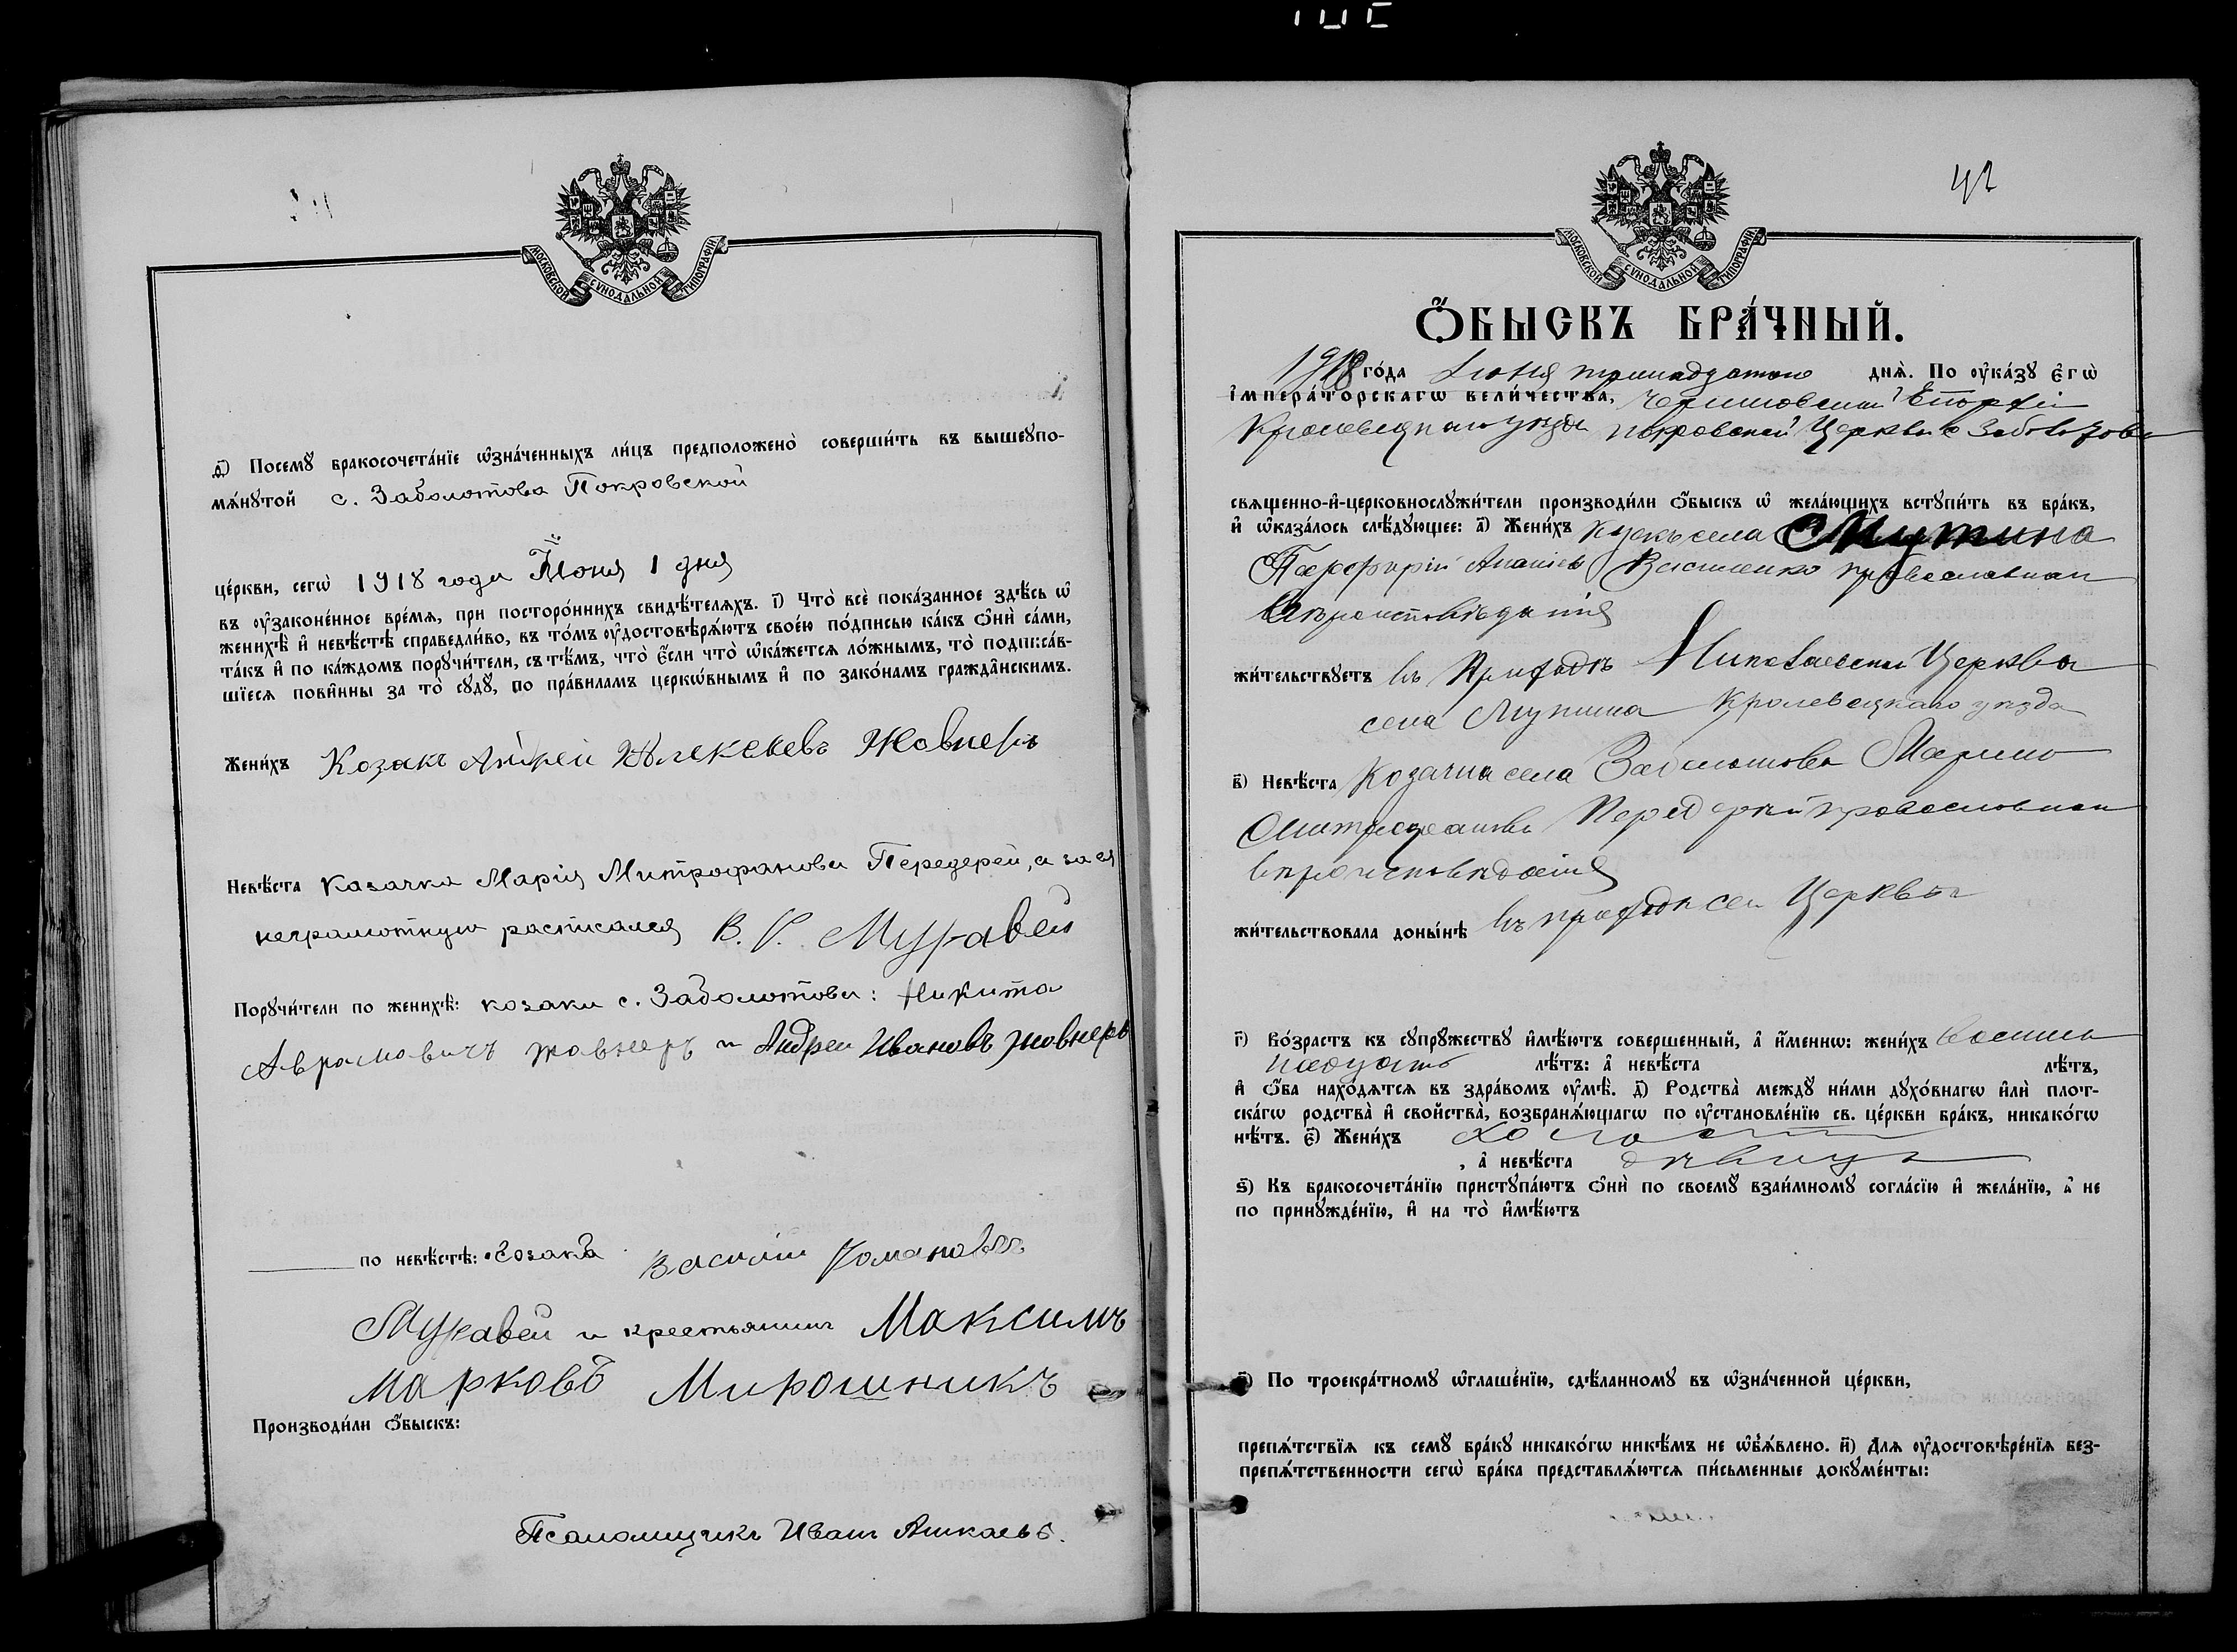 МОСКОВСКОЙ СѴНОДАЛЬНОЙ ТИПОГРАФІИ
ѳ҃) Посемꙋ̀ бракосочета́нїе ѡ҆зна́ченныхъ ли́цъ предположено̀ соверши́ть въ вышеꙋпо-
мѧ́нꙋтой с. Заболотова Покровской
це́ркви, сегѡ̀ 1918 года Іюня 1 дня
въ ᲂу҆законе́нное вре́мѧ, при посторо́ннихъ свидѣ́телѧхъ. і҃) Что̀ всѐ пока́занное здѣ́сь ѡ҆
женихѣ̀ и҆ невѣ́стѣ справедли́во, въ то́мъ ᲂу҆достовѣрѧ́ютъ свое́ю по́дписью ка́къ ѻ҆нѝ са́ми,
та́къ и҆ по ка́ждомъ порꙋчи́тели, съ тѣ́мъ, что̀ є҆́сли что̀ ѡ҆ка́жетсѧ ло́жнымъ, то̀ подписа́в-
шїесѧ пови́нны за то̀ сꙋдꙋ̀, по пра́виламъ церкѡ́внымъ и҆ по зако́намъ гражда̂нскимъ.
Жени́хъ Козакъ Андрей Алексѣевъ Жовнеръ
Невѣ́ста Казачка Марія Митрофанова Передерей, а за ея
неграмотную расписался В. Р. Муравей
Порꙋчи́тели по женихѣ̀: козаки с. Заболотова: Никита
Аврамовичъ Жовнеръ и Андрей Ивановъ Жовнеръ
по невѣ́стѣ: Козакъ Василій Романовъ
Муравей и крестьянинъ Максимъ
Марковъ Мирошникъ
Производи́ли ѻ҆́быскъ:
Псаломщикъ Иванъ
42
МОСКОВСКОЙ СѴНОДАЛЬНОЙ ТИПОГРАФІИ
Ѻ҆́БЫСКЪ БРА́ЧНЫЙ.
1918 го́да Іюня тринадцатаго днѧ̀. По ᲂу҆ка́зꙋ є҆гѡ̀
и҆мпера́торскагѡ вели́чества, Черниговской Епархіи
Кролевецкаго уѣзда Покровской Церкви с Заболотова
свѧщенно-и҆-церковнослꙋжи́тели производи́ли ѻ҆́быскъ ѡ҆ жела́ющихъ встꙋпи́ть въ бра́къ,
и҆ ѡ҆каза́лось слѣ́дꙋющее: а҃) Жени́хъ Козакъ села Мутина
Порфирій Ананіевъ Василенко православнаго
вѣроисповѣданія
жи́тельствꙋетъ въ Приходѣ Николаевской Церкви
села Мутина Кролевецкаго уѣзда
в҃) Невѣ́ста Козачка села Заболотова Марина
Митрофанова Передерей православнаго
вѣроисповѣданія
жи́тельствовала доны́нѣ въ приходѣ сей Церкви
г҃) Во́зрастъ къ сꙋпрꙋ́жествꙋ и҆мѣ́ютъ соверше́нный, а҆ и҆́меннѡ: жени́хъ восем
надцать лѣ́тъ: а҆ невѣ́ста лѣ́тъ,
и҆ ѻ҆́ба нахо́дѧтсѧ въ здра́вомъ ᲂу҆мѣ̀. д҃) Родства̀ междꙋ̀ ни́ми дꙋхо́внагѡ и҆лѝ плот-
ска́гѡ родства̀ и҆ сво́йства̀, возбранѧ́ющагѡ по ᲂу҆становле́нїю св. це́ркви бра́къ, никако́гѡ
нѣ́тъ. є҃) Жени́хъ холостъ
, а҆ невѣ́ста дѣвица
ѕ҃) Къ бракосочета́нїю пристꙋпа́ютъ ѻ҆нѝ по своемꙋ̀ взаи́мномꙋ согла́сїю и҆ жела́нїю, а҆ не
по принꙋжде́нїю, и҆ на то̀ и҆мѣ́ютъ
з҃) По троекра́тномꙋ ѡ҆глаше́нїю, сдѣ́ланномꙋ въ ѡ҆зна́ченной це́ркви,
препѧ́тствїѧ къ семꙋ̀ бра́кꙋ никако́гѡ никѣ́мъ не ѡ҆б̾ѧ́влено. и҃) Длѧ ᲂу҆достовѣре́нїѧ без-
препѧ́тственности сегѡ̀ бра́ка представлѧ́ютсѧ пи́сьменные докꙋме́нты: